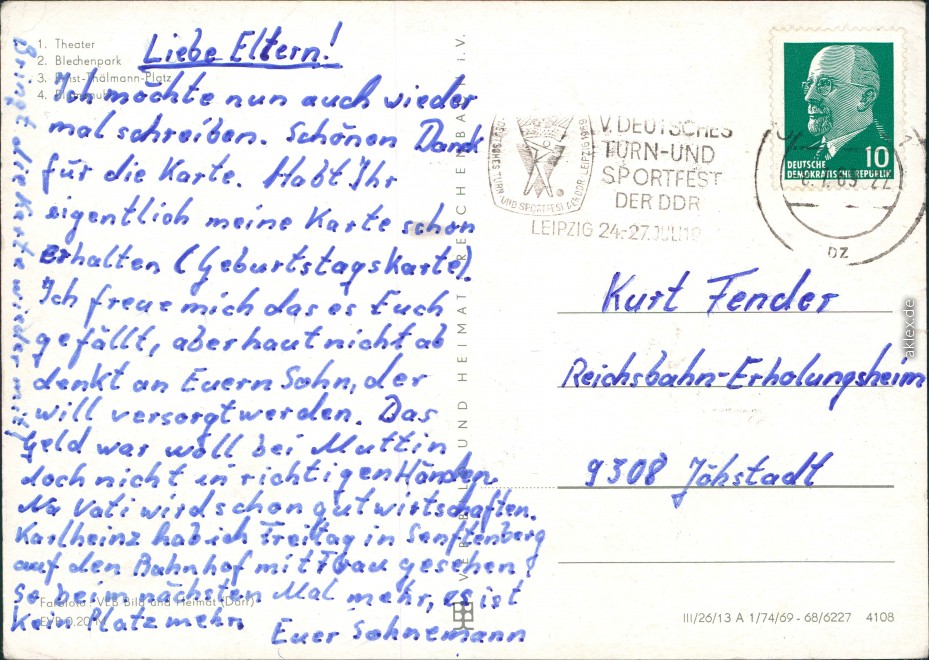 1. Theater
2. Blechenpark
3. Ernst-Thälmann-Platz
4.
Liebe Eltern!
Ich möchte nun auch wieder
mal schreiben. Schönen Dank
für die Karte. Habt Ihr
eigentlich meine Karte schon
erhalten (Geburtstagskarte).
Ich freue mich das es Euch
gefällt, aber haut nicht ab
denkt an Euern Sohn, der
will versorgt werden. Das
Geld war woll bei Muttin
doch nicht in richtigen Händen.
Na Vati wird schon gut wirtschaften.
Karlheinz hab ich Freitag in Senftenberg
auf den Bahnhof mit Frau gesehen!
So beim nächsten Mal mehr, es ist
kein Platz mehr.
Euer Sohnemann
Bringt die Karte wieder mit!
Farbfoto: VEB Bild und Heimat (Darr)
EVP 0,20 M
VEB BILD UND HEIMAT REICHENBACH I. V.
DEUTSCHES TURN- UND SPORTFEST DER DDR LEIPZIG 1969
V. DEUTSCHES
TURN-UND
SPORTFEST
DER DDR
LEIPZIG 24.-27. JULI 19
DZ
10
DEUTSCHE
DEMOKRATISCHE REPUBLIK
Kurt Fender
Reichsbahn-Erholungsheim
9308 Jöhstadt
III/26/13 A 1/74/69 - 68/6227 4108
aklex.de